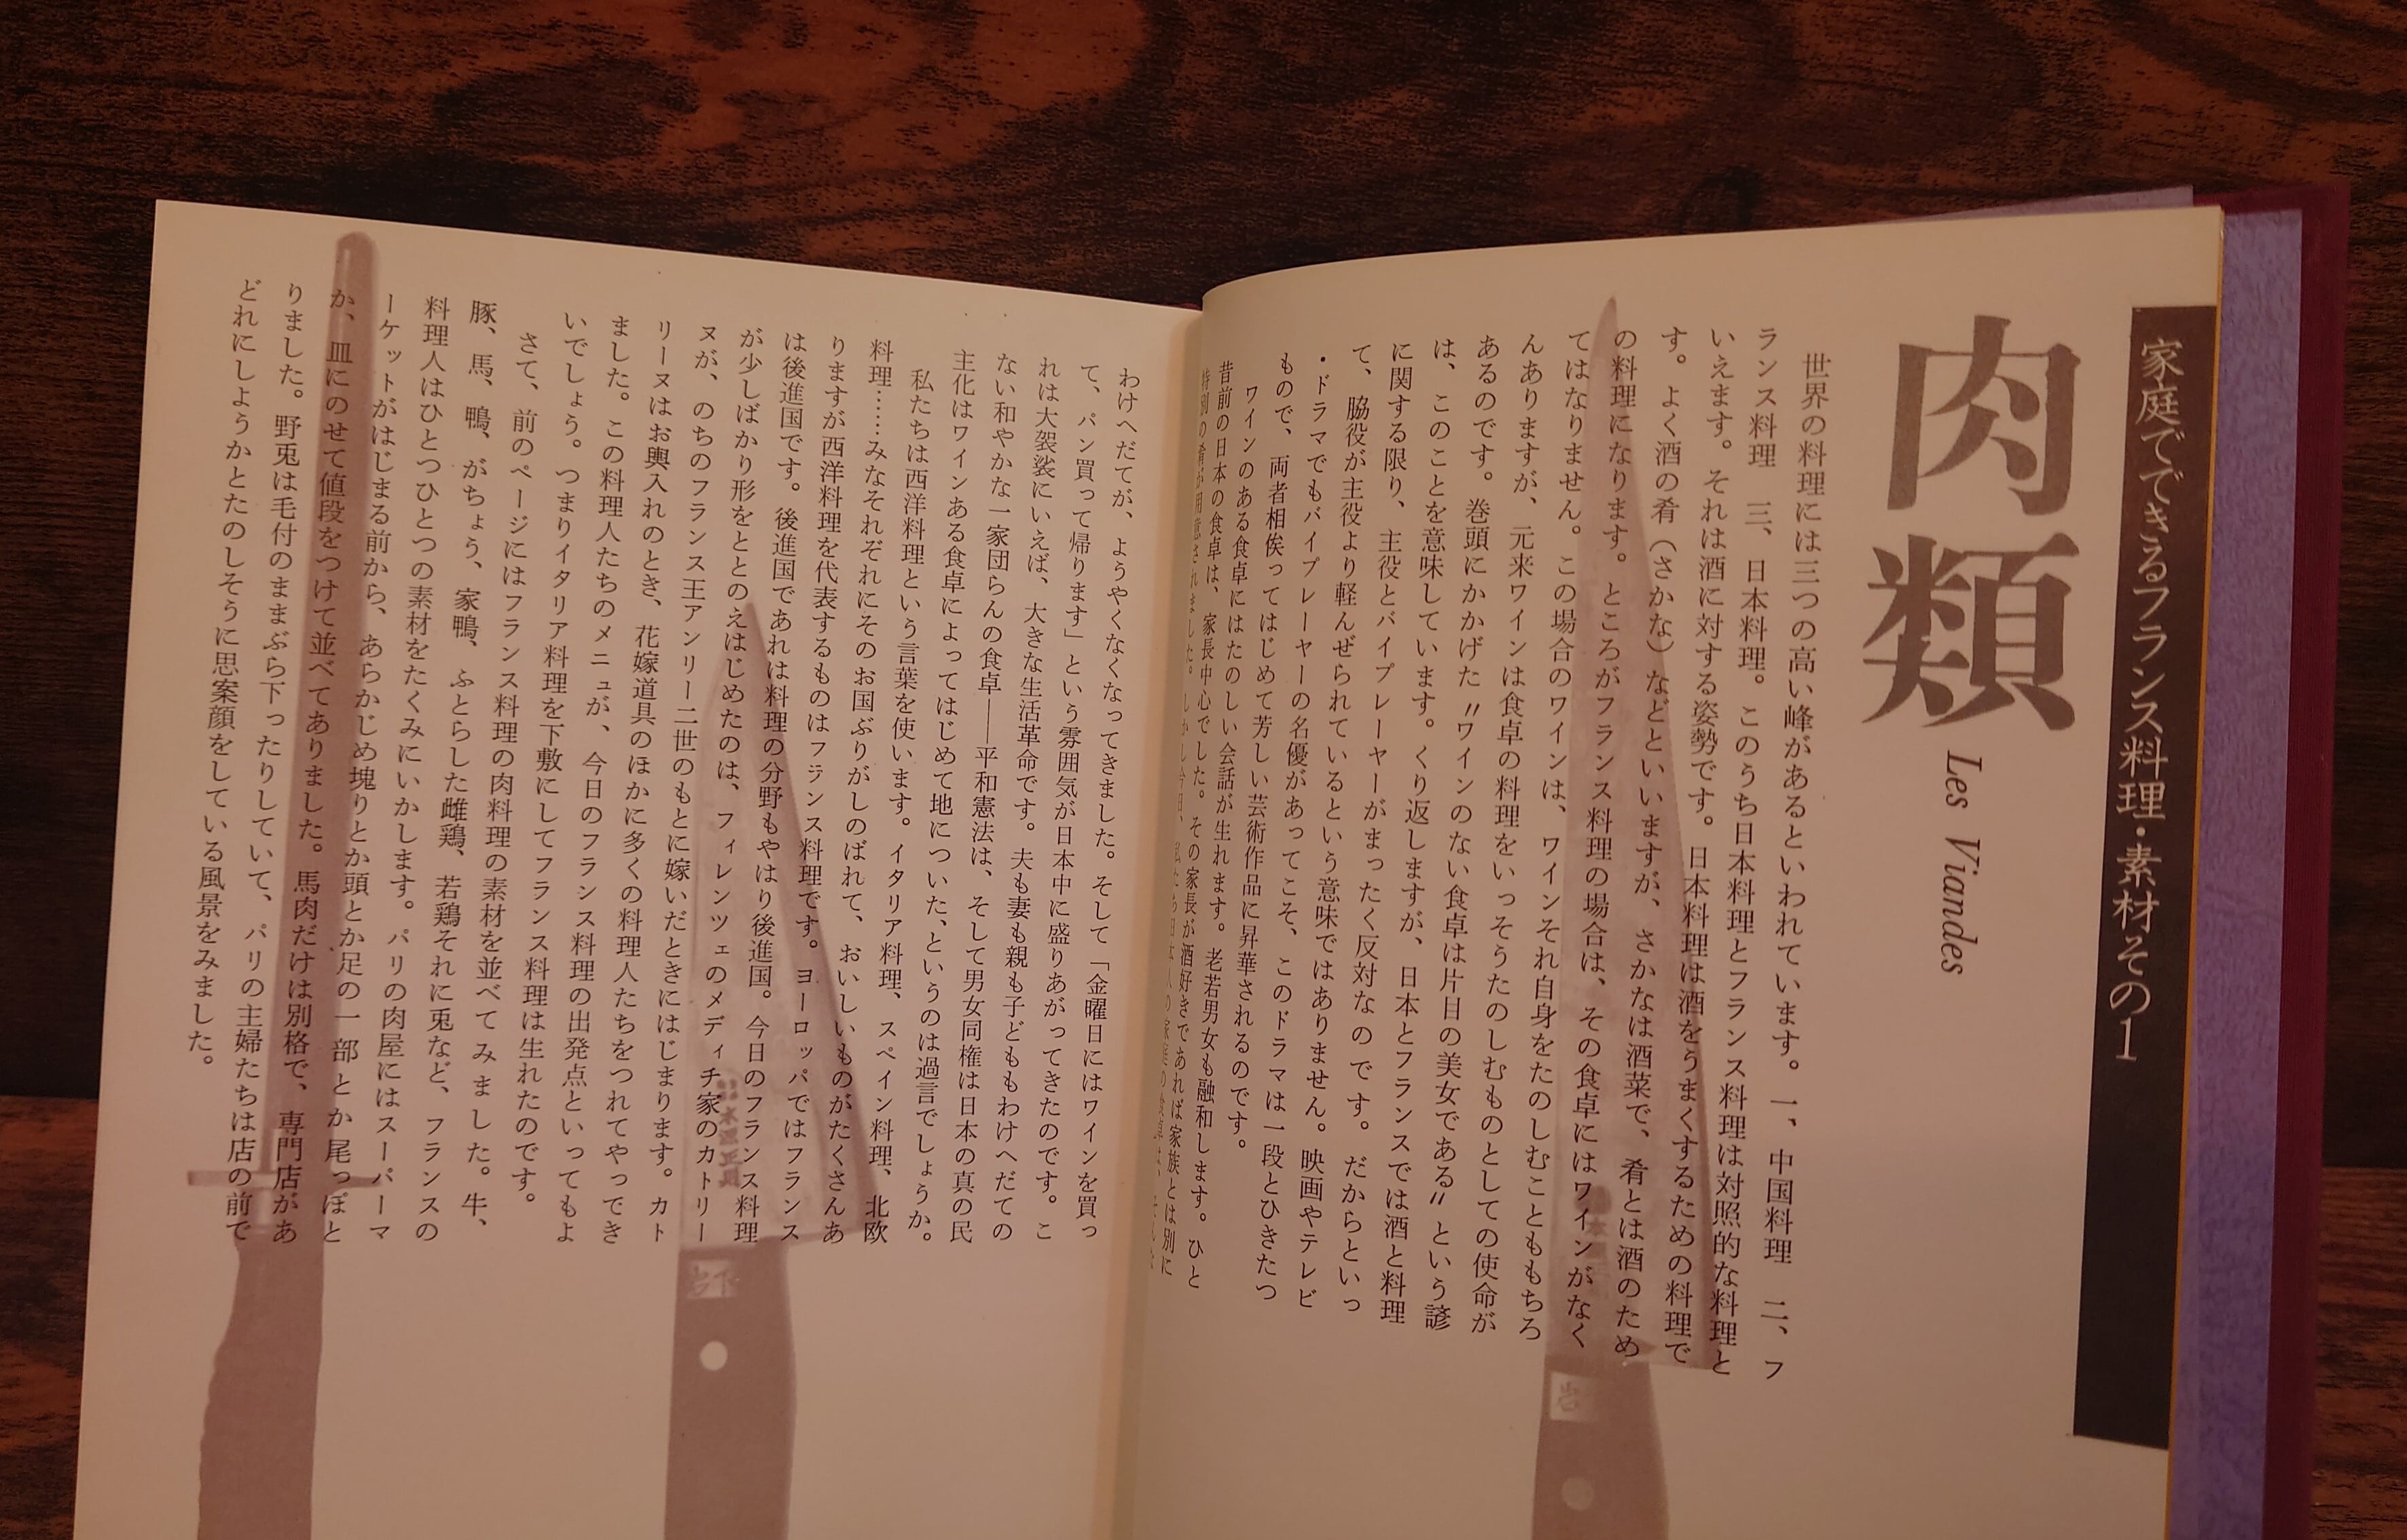 家庭でできるフランス料理・素材その1
肉類
Les Viandes
世界の料理には三つの高い峰があるといわれています。一、中国料理 二、フ
ランス料理 三、日本料理。このうち日本料理とフランス料理は対照的な料理と
いえます。それは酒に対する姿勢です。日本料理は酒をうまくするための料理で
す。よく酒の肴（さかな）などといいますが、さかなは酒菜で、肴とは酒のため
の料理になります。ところがフランス料理の場合は、その食卓にはワインがなく
てはなりません。この場合のワインは、ワインそれ自身をたのしむこともももちろ
んありますが、元来ワインは食卓の料理をいっそうたのしむものとしての使命が
あるのです。巻頭にかかげた〝ワインのない食卓は片目の美女である〟という諺
は、このことを意味しています。くり返しますが、日本とフランスでは酒と料理
に関する限り、主役とバイプレーヤーがまったく反対なのです。だからといっ
て、脇役が主役より軽んぜられているという意味ではありません。映画やテレビ
・ドラマでもバイプレーヤーの名優があってこそ、このドラマは一段とひきたつ
もので、両者相俟ってはじめて芳しい芸術作品に昇華されるのです。
ワインのある食卓にはたのしい会話が生れます。老若男女も融和します。ひと
昔前の日本の食卓は、家長中心でした。その家長が酒好きであれば家族とは別に
特別の肴が用意されました。しかし今日、私たち日本人の家庭の食卓は、
わけへだてが、ようやくなくなってきました。そして「金曜日にはワインを買っ
て、パン買って帰ります」という雰囲気が日本中に盛りあがってきたのです。こ
れは大袈裟にいえば、大きな生活革命です。夫も妻も親も子どももわけへだての
ない和やかな一家団らんの食卓――平和憲法は、そして男女同権は日本の真の民
主化はワインある食卓によってはじめて地についた、というのは過言でしょうか。
私たちは西洋料理という言葉を使います。イタリア料理、スペイン料理、北欧
料理……みなそれぞれにそのお国ぶりがしのばれて、おいしいものがたくさんあ
りますが西洋料理を代表するものはフランス料理です。ヨーロッパではフランス
は後進国です。後進国であれは料理の分野もやはり後進国。今日のフランス料理
が少しばかり形をととのえはじめたのは、フィレンツェのメディチ家のカトリー
ヌが、のちのフランス王アンリー二世のもとに嫁いだときにはじまります。カト
リーヌはお輿入れのとき、花嫁道具のほかに多くの料理人たちをつれてやってき
ました。この料理人たちのメニュが、今日のフランス料理の出発点といってもよ
いでしょう。つまりイタリア料理を下敷にしてフランス料理は生れたのです。
さて、前のページにはフランス料理の肉料理の素材を並べてみました。牛、
豚、馬、鴨、がちょう、家鴨、ふとらした雌鶏、若鶏それに兎など、フランスの
料理人はひとつひとつの素材をたくみにいかします。パリの肉屋にはスーパーマ
ーケットがはじまる前から、あらかじめ塊りとか頭とか足の一部とか尾っぽと
か、皿にのせて値段をつけて並べてありました。馬肉だけは別格で、専門店があ
りました。野兎は毛付のままぶら下ったりしていて、パリの主婦たちは店の前で
どれにしようかとたのしそうに思案顔をしている風景をみました。
岩下